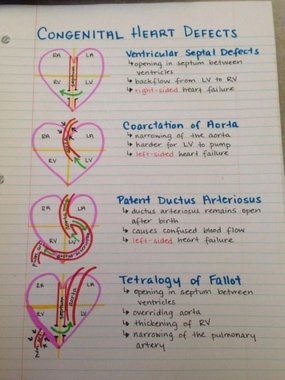 CONGENITAL HEART DEFECTS
Ventricular Septal Defects
RA LA
RV LV
septum
↳ opening in septum between
ventricles
↳ backflow from LV to RV
↳ right-sided heart failure
Coarctation of Aorta
RA LA
RV LV
↳ narrowing of the aorta
↳ harder for LV to pump
↳ left-sided heart failure
Patent Ductus Arteriosus
RA LA
RV LV
↳ ductus arteriosus remains open
after birth
↳ causes confused blood flow
↳ left-sided heart failure
Tetralogy of Fallot
RA LA
RV LV
septum
aorta
↳ opening in septum between
ventricles
↳ overriding aorta
↳ thickening of RV
↳ narrowing of the pulmonary
artery